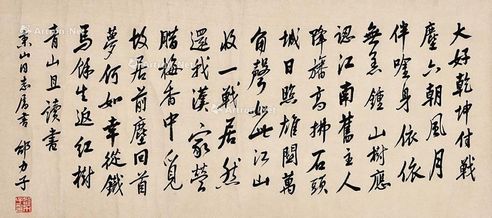 大好乾坤付戰
塵六朝風月
伴吟身依依
無恙鍾山樹應
認江南舊主人
降旛高拂石頭
城日照雄關萬
角聲如此江山
收一戰居然
還我漢家營
臘梅香中覓
故居前塵回首
夢何如幸從鐵
馬餘生返紅樹
青山且讀書
東山同志屬書 邵力子